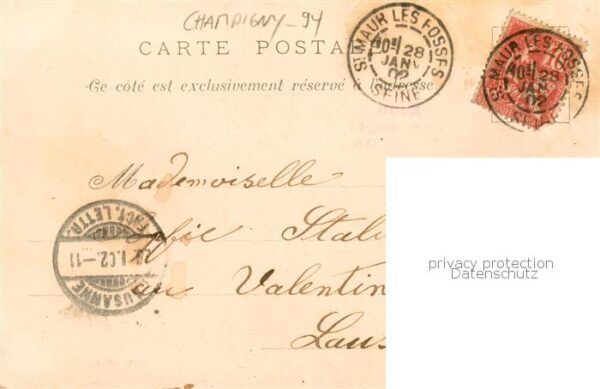 CHAMPIGNY_94
CARTE POSTA
Ce côté est exclusivement réservé à l'adresse
ST MAUR LES FOSSES
28
JANV
02
SEINE
MAUR LES FOSSES
28
JAN
02
Mademoiselle
Stal
au Valentin
Laus
FACT. LETTR.
I.02.-11
LAUSANNE
privacy protection
Datenschutz